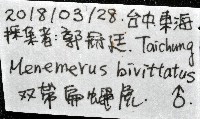 2018/03/28.台中東海
採集者:郭冠廷. Taichung
Menemerus bivittatus
双带扁蝇虎. ♂.